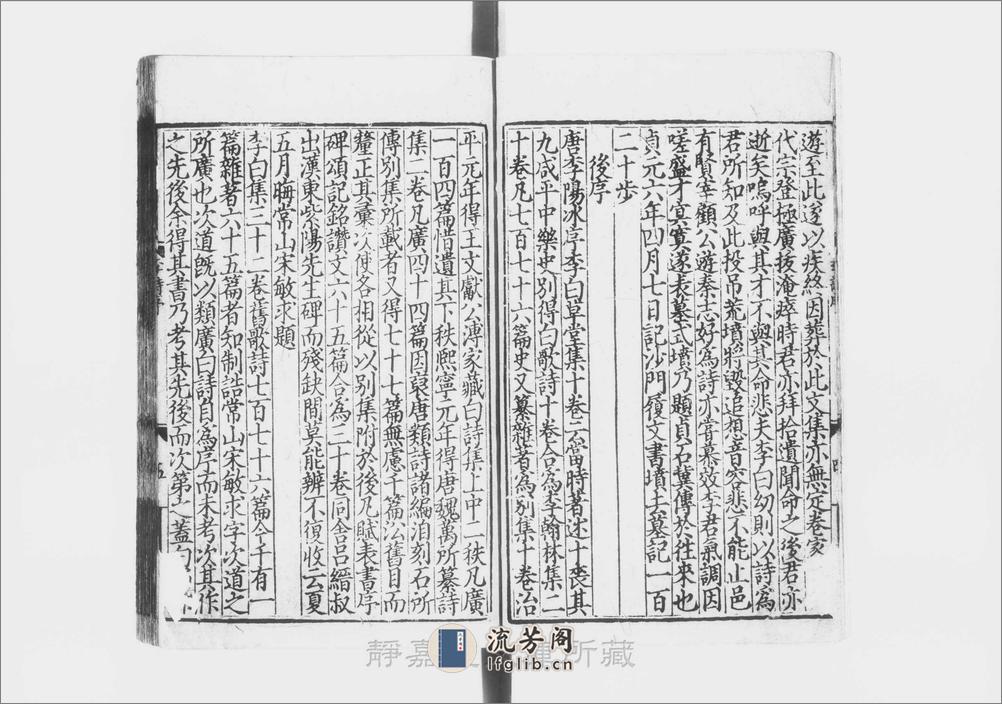 遊至此遂以疾終因葬於此文集亦無定卷家
代宗登極廣拔淹瘁時君亦拜拾遺聞命之後君亦
逝矣嗚呼與其才不與其命悲夫李白幼則以詩為
君所知及此投弔荒墳將毀追想音容悲不能止邑
有賢宰顧公遊秦志好為詩亦嘗慕效李君氣調因
嗟盛才冥寞遂表墓式墳乃題貞石冀傳於往來也
貞元六年四月七日記沙門履文書墳去墓記一百
二十步
後序
唐李陽冰序李白草堂集十卷云當時著述十喪其
九咸平中樂史別得白歌詩十卷合為李翰林集二
十卷凡七百七十六篇史又纂雜著為別集十卷治
平元年得王文獻公溥家藏白詩集上中二秩凡廣
一百四篇惜遺其下秩熙寧元年得唐魏萬所纂詩
集二卷凡廣四十四篇因裒唐類詩諸編洎刻石所
傳別集所載者又得七十七篇無慮千篇沿舊目而
釐正其彙次使各相從以別集附於後凡賦表書序
碑頌記銘讚文六十五篇合為三十卷同舍呂縉叔
出漢東紫陽先生碑而殘缺間莫能辨不復收云夏
五月晦常山宋敏求題
李白集三十二卷舊歌詩七百七十六篇今千有一
篇雜著六十五篇者知制誥常山宋敏求字次道之
所廣也次道旣以類廣白詩自為序而未考次其作
之先後余得其書乃考其先後而次第之蓋白
五
四
靜嘉 所藏
流芳阁
lfglib.cn